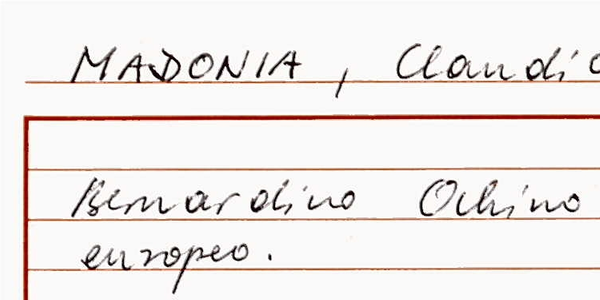 MADONIA, Claudio
Bernardino Ochino
europeo.